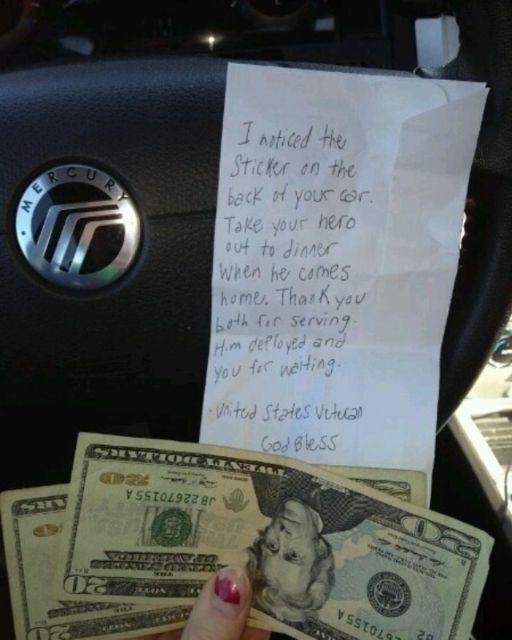 MERCURY
I noticed the
Sticker on the
back of your car.
Take your hero
out to dinner
when he comes
home. Thank you
both for serving.
Him deployed and
you for waiting.
-United States Veteran
God Bless
20
JB22670155A
20
JB22670155A
20